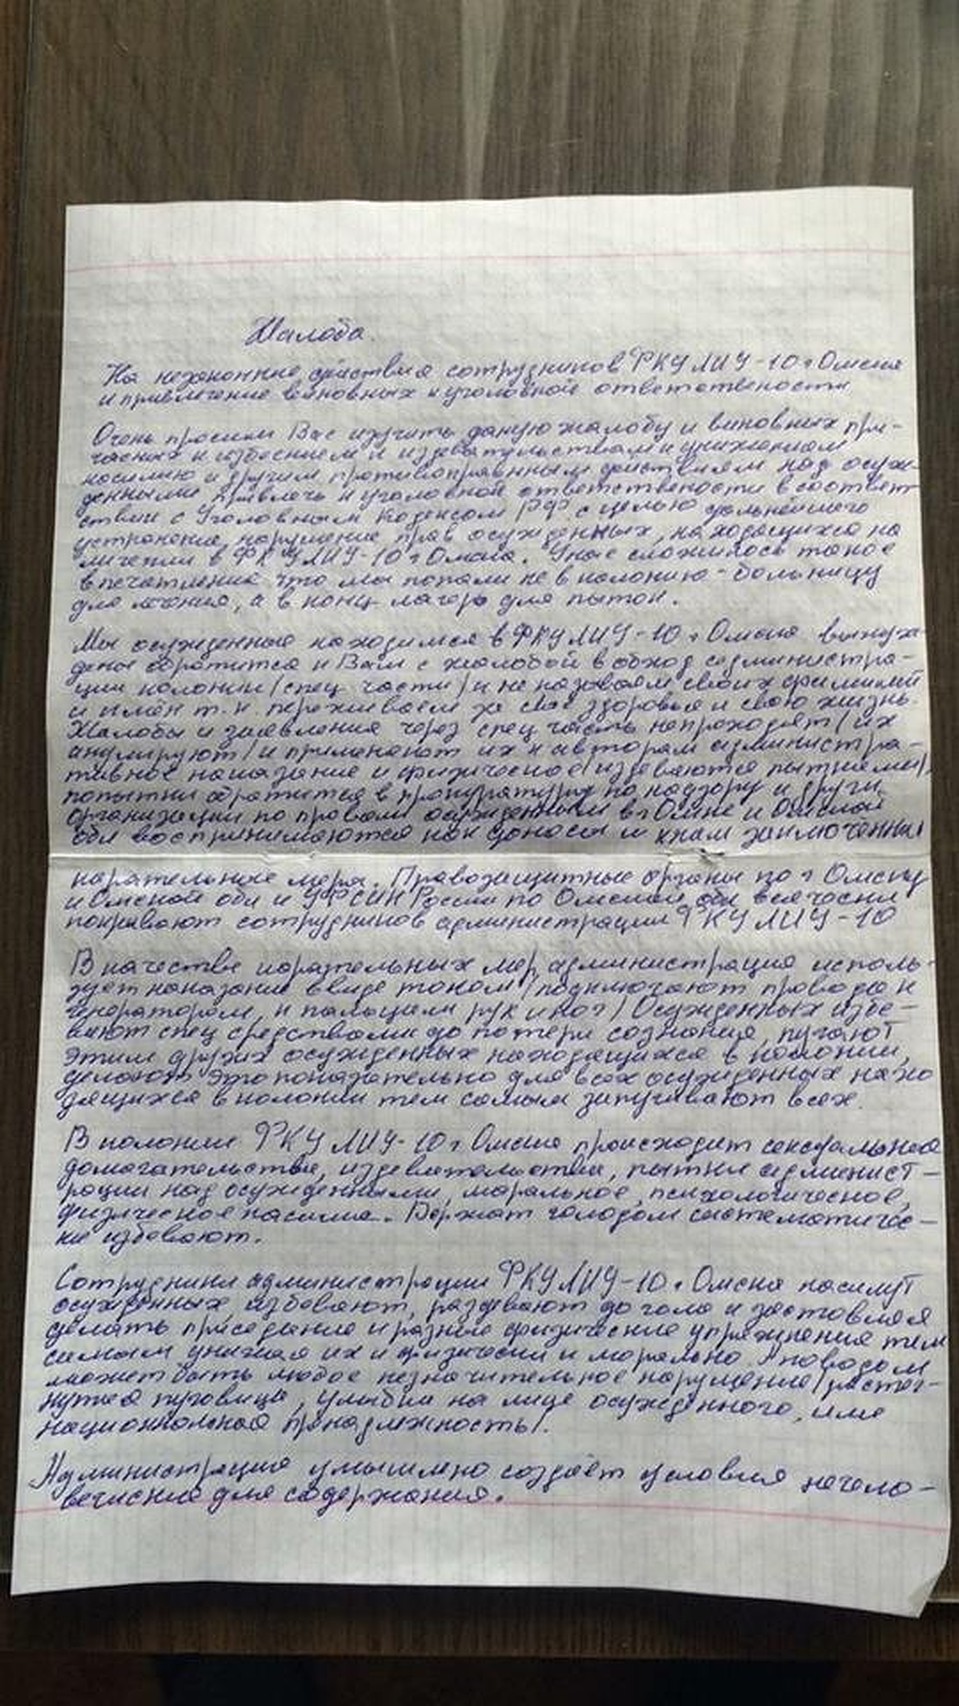 Жалоба.
На незаконные действия сотрудников ФКУ ЛИУ-10 г Омска
и привлечение виновных к уголовной ответственности
Очень просим Вас изучить даную жалобу и виновных при-
часных к избиением и издевательствам и унижением
насилию и другим противоправным действиям над осуж-
денными привлечь к уголовной ответствености в соответ
ствии с Уголовным Кодексом РФ с целью дальнейшего
устранения, нарушение прав осужденных, находящихся на
личении в ФКУ ЛИУ-10 г Омска. У нас сложилось такое
впечатление что мы попали не в колонию-больницу
для лечения, а в конц-лагерь для пыток.
Мы осужденные находимся в ФКУ ЛИУ-10 г Омска вынуж-
дены обратится к Вам с жалобой в обход администра-
ции колонии (спец части) и не называем своих фамилий
и имён т.к. переживаем за своё здоровье и свою жизнь.
Жалобы и заявления через спец часть непроходят (их
анулируют) и применяют их к авторам администра-
тивное наказание и физическое (издеваются пытками),
попытки обратится в прокуратуру по надзору и други
организации по правам осужденным в г Омске и Омской
обл воспринимаются как доносы и к нам заключенны
карательные меры. Правозащитные органы по г Омску
и Омской обл и УФСИН России по Омской обл всячески
покрывают сотрудников администрации ФКУ ЛИУ-10
В качестве карательных мер, администрация исполь-
зует наказание ввиде током (подключают провода к
генератором, к пальцам рук и ног) Осужденных избе-
вают спец средствами до потери сознания, пугают
этим других осужденных находящихся в колонии,
делают это показательно для всех осужденных нахо
дящихся в колонии тем самым запугивают всех.
В колонии ФКУ ЛИУ-10 г Омска происходит сексуальное
домогательства, издевательства, пытки админист-
рации над осужденными, моральное, психологическое,
физическое насилие. Держат голодом систематичес-
ки избевают.
Сотрудники администрации ФКУ ЛИУ-10 г Омска насилут
осужденных, избевают, раздевают до гола и заставляя
делать приседание и разные физические упражнения тем
самым унижая их и физически и морально. А поводом
может быть любое незначительное нарушение (растег-
нутая пуговица, улыбка на лице осужденного, или
национальная принадлежность).
Администрация умышлено создаёт условия нечело-
веческие для содержания.